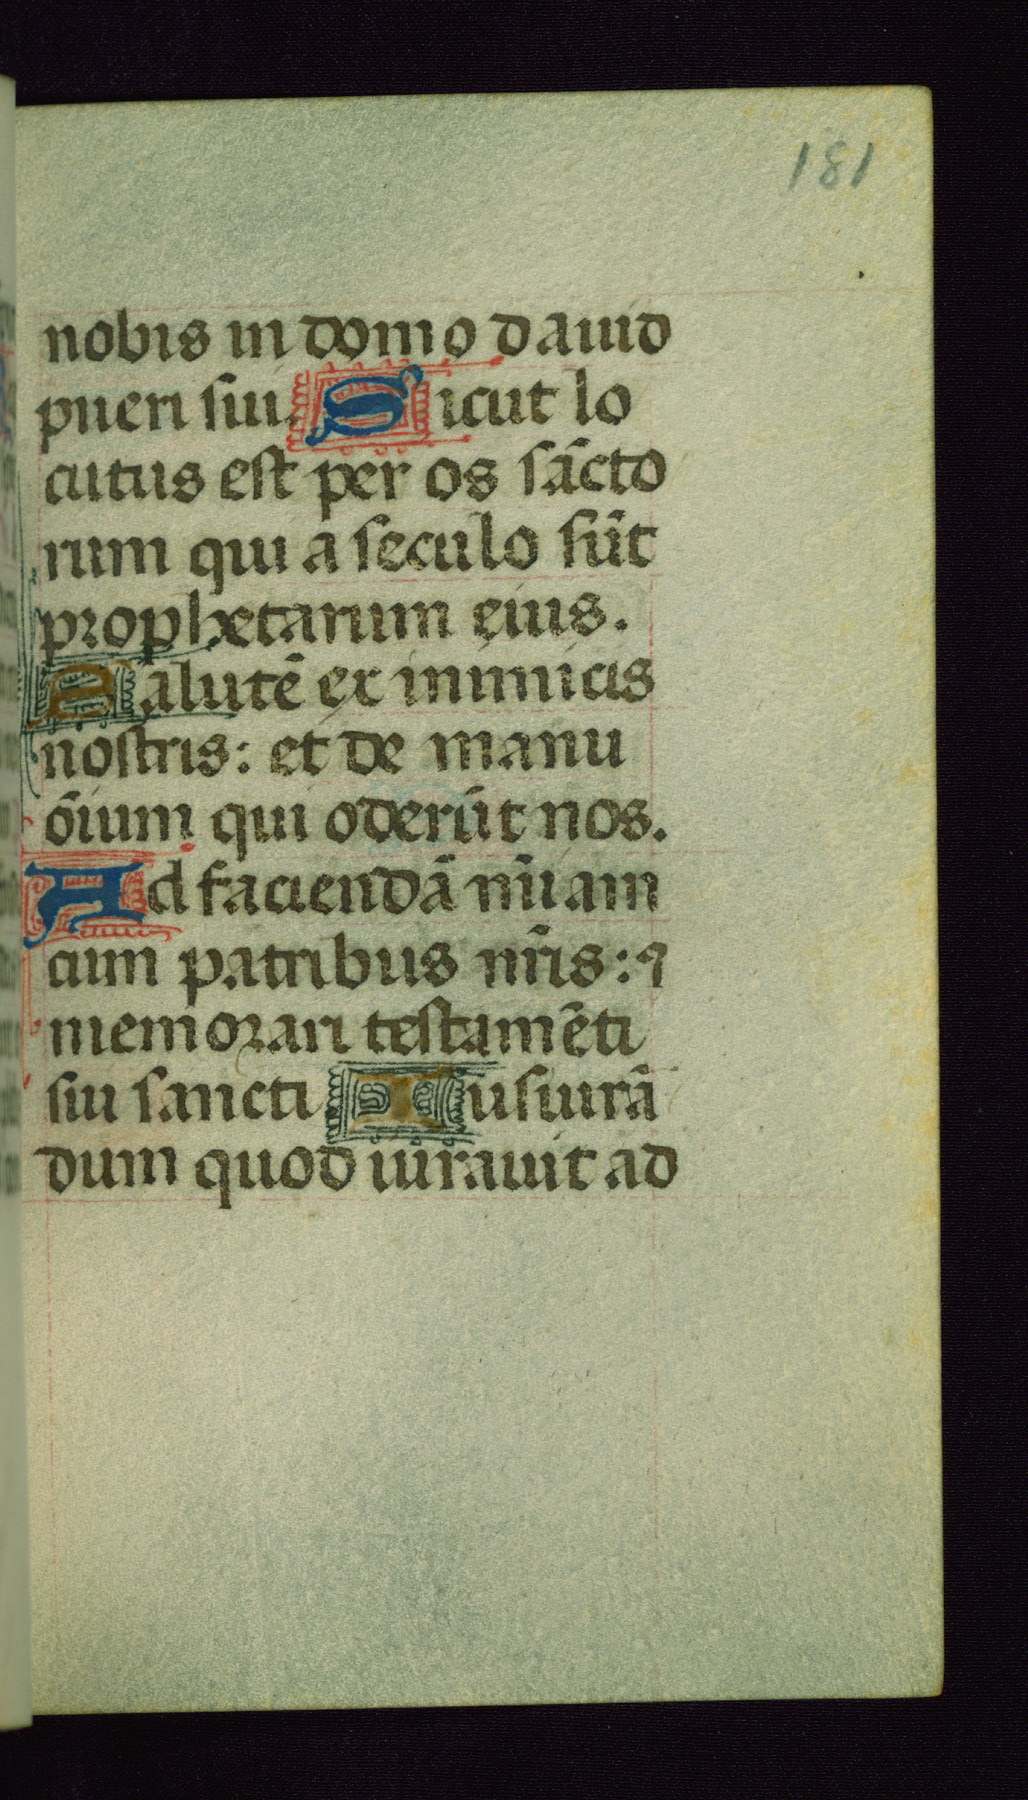 181
nobis in domo dauid
pueri sui. Sicut lo
cutus est per os sācto
rum qui a seculo sūt
prophetarum eius.
Salutē ex inimicis
nostris: et de manu
ōium qui oderūt nos.
Ad faciendā mīam
cum patribus nr̄is: ⁊
memorari testamēti
sui sancti. Iusiurā
dum quod iurauit ad